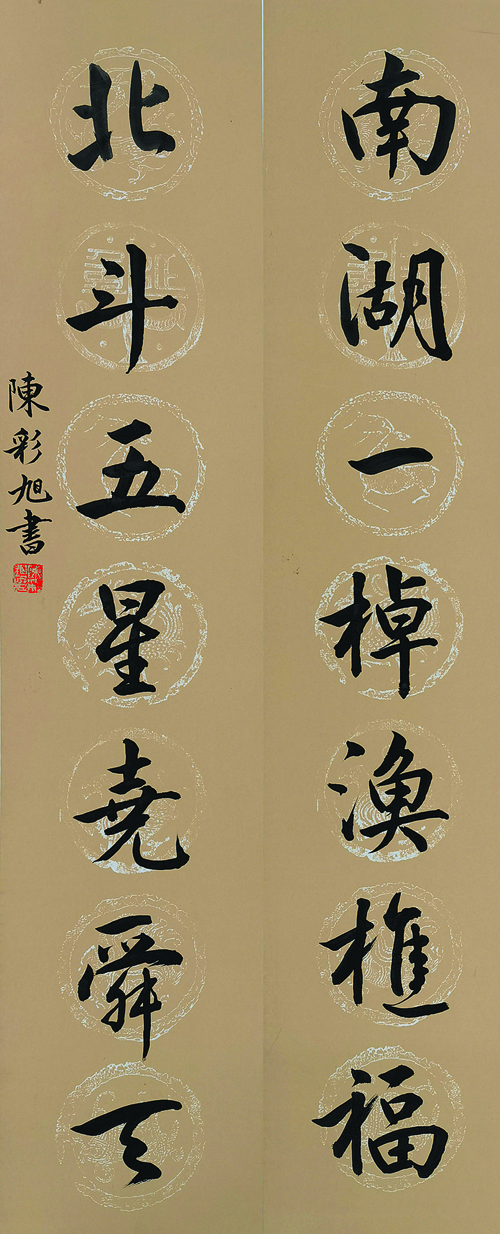 南湖一棹漁樵福
北斗五星堯舜天
陳彩旭書